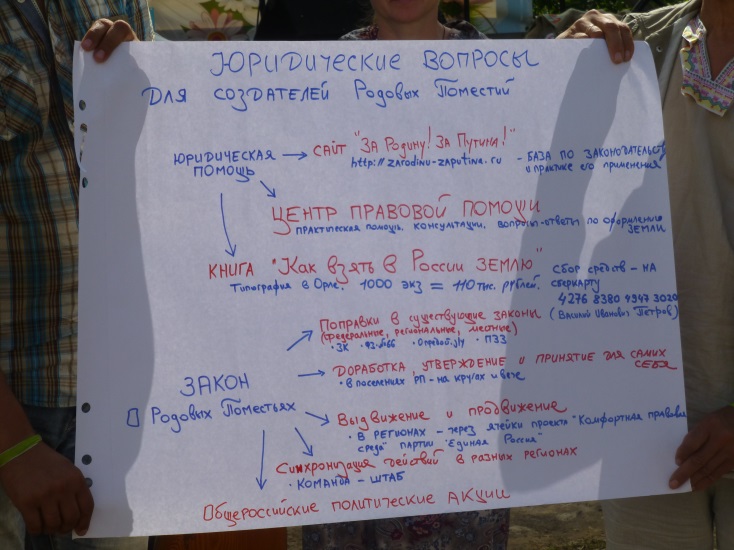 ЮРИДИЧЕСКИЕ ВОПРОСЫ
ДЛЯ СОЗДАТЕЛЕЙ Родовых Поместий
ЮРИДИЧЕСКАЯ ПОМОЩЬ
САЙТ "ЗА Родину! ЗА Путина!"
http://zarodinu-zaputina.ru - БАЗА ПО ЗАКОНОДАТЕЛЬСТВ
и практике его применения
ЦЕНТР ПРАВОВОЙ ПОМОЩИ
ПРАКТИЧЕСКАЯ ПОМОЩЬ, КОНСУЛЬТАЦИИ, ВОПРОСЫ-ОТВЕТЫ ПО ОФОРМЛЕНИЮ
ЗЕМЛИ
КНИГА "Как взять в России ЗЕМЛЮ"
Типография в Орле, 1000 экз = 110 тыс. рублей.
СБОР СРЕДСТВ - НА
сберкарту
4276 8380 4947 3020
(Василий Иванович Петров)
ЗАКОН
О Родовых Поместьях
Поправки в существующие законы
(федеральные, региональные, местные)
· ЗК · ПЗЗ
ДОРАБОТКА, УТВЕРЖДЕНИЕ и ПРИНЯТИЕ для САМИХ
СЕБЯ
· в поселениях РП - на кругах и вече
Выдвижение и продвижение
· В РЕГИОНАХ - через ячейки проекта "Комфортная правовая
среда" партии "Единая Россия"
Синхронизация действий в разных регионах
· КОМАНДА - ШТАБ
Общероссийские политические АКЦИИ